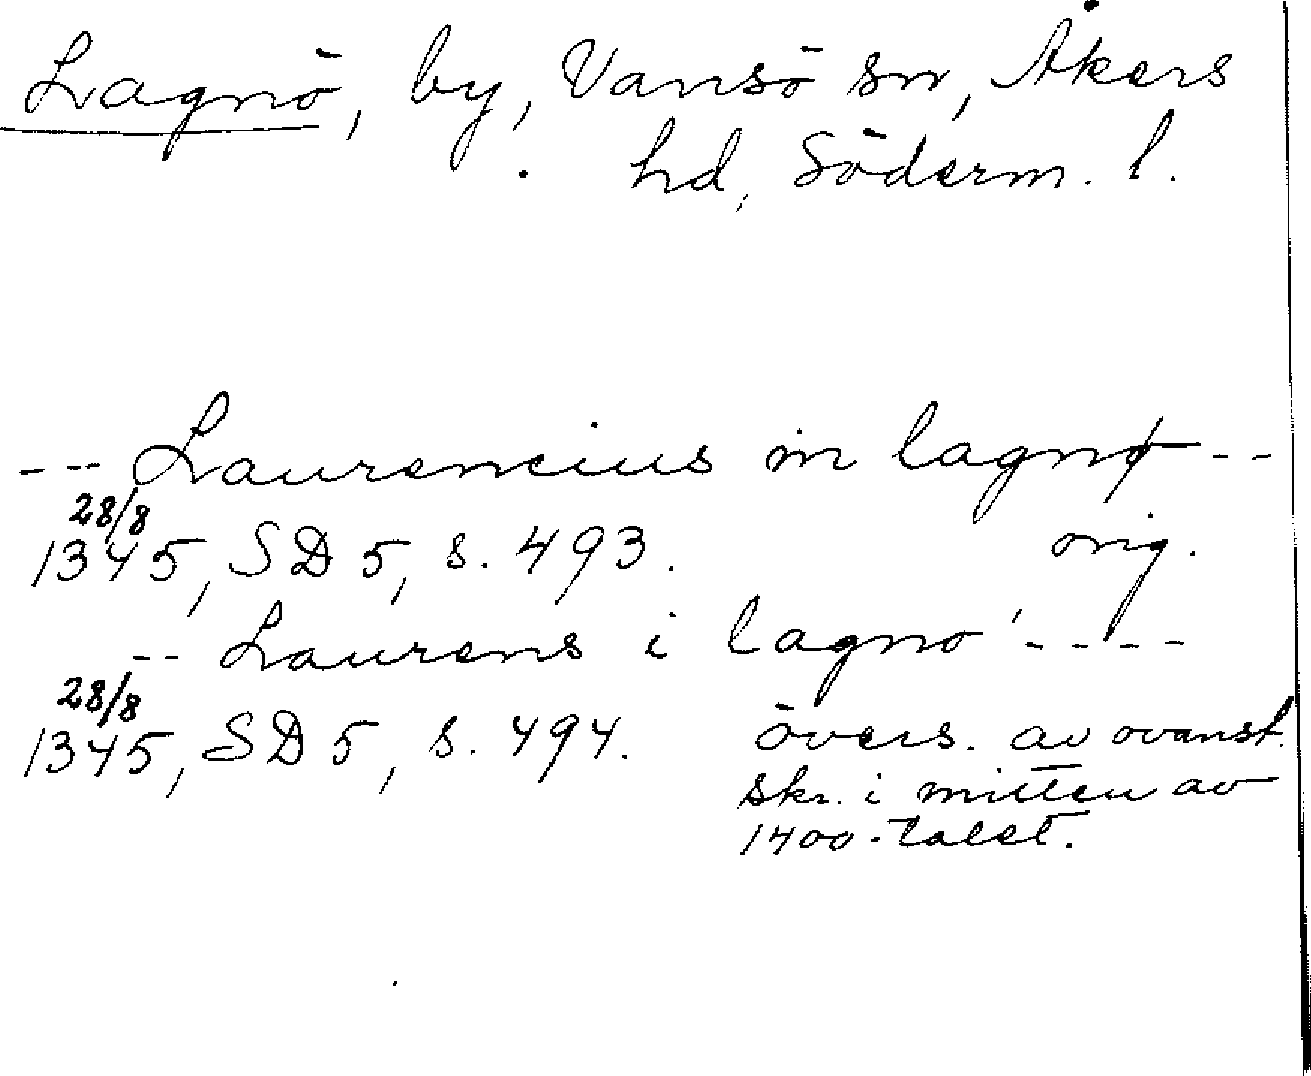 Lagnö, by, Vansö sn, Åkers
hd, Söderm. l.
--- Laurencius in lagnø --
28/8
1345, SD 5, s. 493. orig.
-- Laurens i lagno' ----
28/8
1345, SD 5, s. 494. övers. av ovanst.
skr. i mitten av
1400-talet.